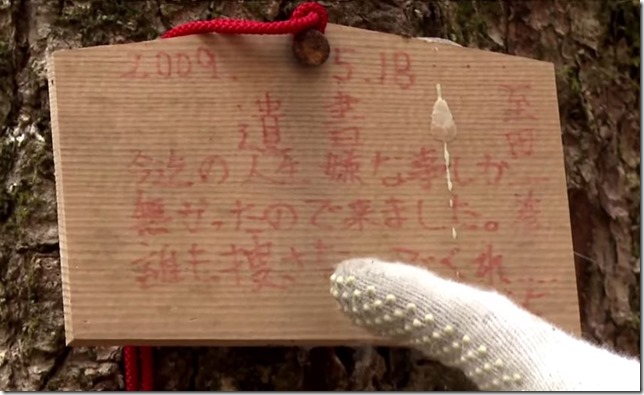 2009. 5.18
遺書
今迄の人生嫌な事しか
無かったので来ました。
誰も捜さ